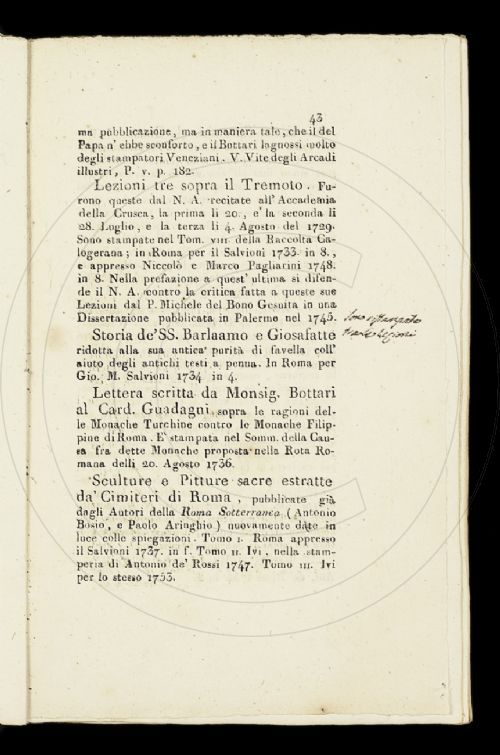 43
ma pubblicazione, ma in maniera tale, che il del
Papa n' ebbe sconforto, e il Bottari lagnossi molto
degli stampatori Veneziani. V. Vite degli Arcadi
illustri, P. v. p. 182.
Lezioni tre sopra il Tremoto. Fu-
rono queste dal N. A. recitate all' Accademia
della Crusca, la prima li 20., e la seconda li
28. Luglio, e la terza li 4. Agosto del 1729.
Sono stampate nel Tom. VIII. della Raccolta Ca-
logerana; in Roma per il Salvioni 1733. in 8.,
e appresso Niccolò e Marco Pagliarini 1748.
in 8. Nella prefazione a quest' ultima si difen-
de il N. A. contro la critica fatta a queste sue
Lezioni dal P. Michele del Bono Gesuita in una
Dissertazione pubblicata in Palermo nel 1745.
Storia de' SS. Barlaamo e Giosafatte
ridotta alla sua antica purità di favella coll'
aiuto degli antichi testi a penna. In Roma per
Gio. M. Salvioni 1734. in 4.
Lettera scritta da Monsig. Bottari
al Card. Guadagni sopra le ragioni del-
le Monache Turchine contro le Monache Filip-
pine di Roma. E' stampata nel Somm. della Cau-
sa fra dette Monache proposta nella Rota Ro-
mana delli 20. Agosto 1736.
Sculture e Pitture sacre estratte
da' Cimiteri di Roma, pubblicate già
dagli Autori della Roma Sotterranea (Antonio
Bosio, e Paolo Aringhio) nuovamente date in
luce colle spiegazioni. Tomo I. Roma appresso
il Salvioni 1737. in f. Tomo II. Ivi, nella stam-
peria di Antonio de' Rossi 1747. Tomo III. Ivi
per lo stesso 1753.